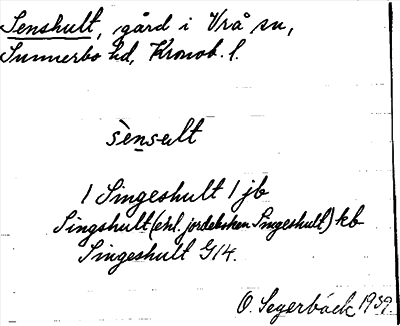 Senshult, gård i Vrå sn,
Sunnerbo hd, Kronob. l.
sènsalt
/ Singeshult / jb
Singshult (enl. jordeboken Singeshult) kb
Singeshult G14.
O. Segerbäck 1939.